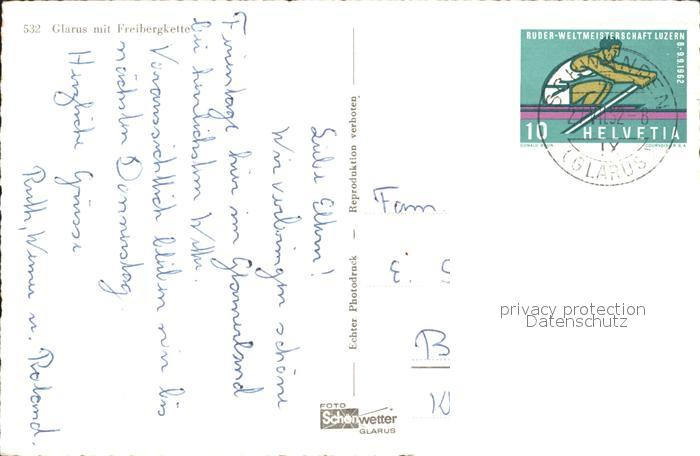 532 Glarus mit Freibergkette
Liebe Eltern!
Wir verbringen schöne
Ferientage hier im Glarnerland
bei herrlichstem Wetter.
Voraussichtlich bleiben wir bis
nächsten Donnerstag.
Herzliche Grüsse
Ruth, Werner u. Roland.
Echter Photodruck – Reproduktion verboten
FOTO
Schönwetter
GLARUS
Fam.
E.
B
K
RUDER-WELTMEISTERSCHAFT LUZERN
6-9.9.1962
10 HELVETIA
DONALD BRUN COURVOISIER S.A.
(GLARUS)
privacy protection
Datenschutz